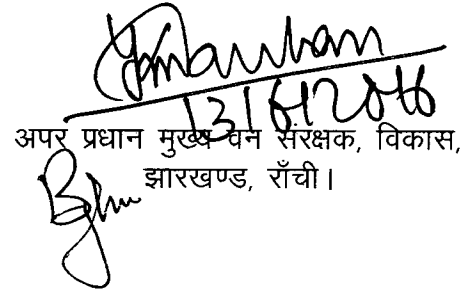 13/6/2016
अपर प्रधान मुख्य वन संरक्षक, विकास,
झारखण्ड, राँची।